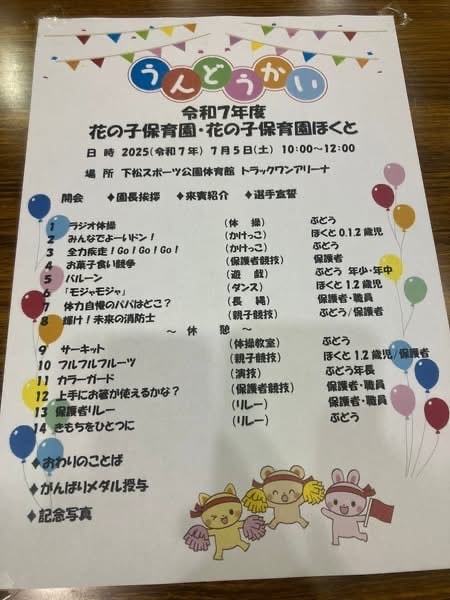 うんどうかい
令和7年度
花の子保育園・花の子保育園ほくと
日 時 2025(令和7年) 7月5日(土) 10:00~12:00
場 所 下松スポーツ公園体育館 トラックワンアリーナ
開会 ♦園長挨拶 ♦来賓紹介 ♦選手宣誓
1 ラジオ体操 (体 操) ぶどう
2 みんなでよーいドン! (かけっこ) ほくと0.1.2歳児
3 全力疾走!Go!Go!Go! (かけっこ) ぶどう
4 お菓子食い競争 (保護者競技) 保護者
5 バルーン (遊 戯) ぶどう 年少・年中
6 「モジャモジャ」 (ダンス) ほくと1.2歳児
7 体力自慢のパパはどこ? (長 縄) 保護者・職員
8 輝け!未来の消防士 (親子競技) ぶどう/保護者
~ 休 憩 ~
9 サーキット (体操教室) ぶどう
10 フルフルフルーツ (親子競技) ほくと1.2歳児/保護者
11 カラーガード (演技) ぶどう年長
12 上手にお箸が使えるかな? (保護者競技) 保護者・職員
13 保護者リレー (リレー) 保護者・職員
14 きもちをひとつに (リレー) ぶどう
♦おわりのことば
♦がんばりメダル授与
♦記念写真